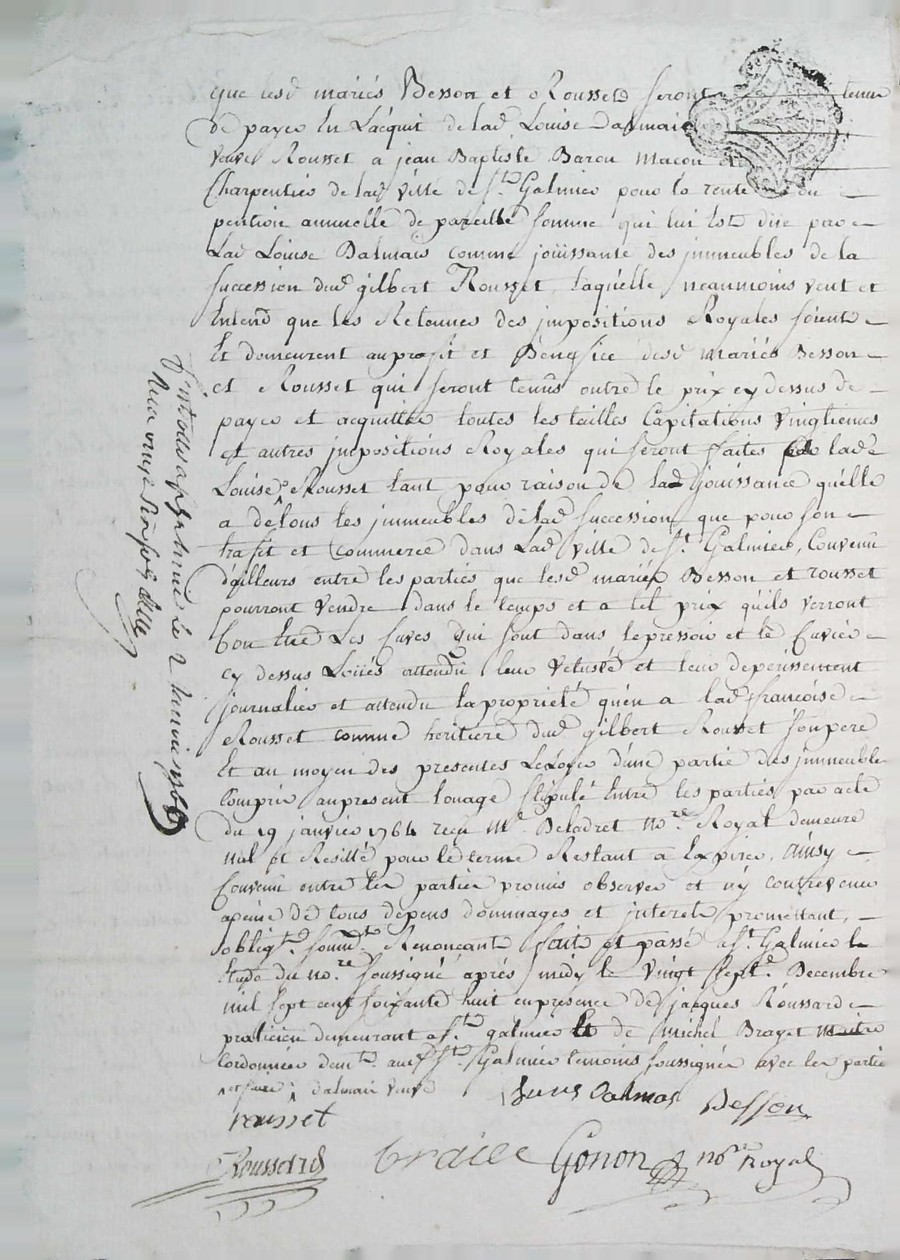 que lesd mariés Besson et Rousset seront tenus
de payer En L'acquit de lad Louise dalmais
veuve Rousset a jean Baptiste Barou Macon et
Charpentier de lad ville de St Galmier pour la rente ou
pention annuelle de pareille somme qui lui Est düe par
Lad Louise Dalmais comme joüissante des immeubles de la
succession dud gilbert Rousset, laquelle neanmoins veut et
Entend que les Retenues des impositions Royales soient
Et demeurent au profit et Benefice desd mariés Besson
et Rousset qui seront tenus outre le prix cy dessus de
payer et acquitter toutes les tailles Capitations vingtiemes
et autres impositions Royales qui seront faites lade
Louise Rousset tant pour raison de lad Jouissance quelle
a de tous les immeubles de lad succession que pour son
trafit et Commerce dans Lad ville de St Galmier, Convenu
d'ailleurs entre les parties que lesd mariés Besson et rousset
pourront vendre dans le temps et a tel prix quils verront
bon Etre Les Cuves qui sont dans le pressoir et le Cuvier
cy dessus Loüés attendu leur vetusté et leur deperissement
journalier et attendu la propriété quen a lad françoise
Rousset comme heritiere dud gilbert Rousset son pere
Et au moyen des presentes d'une partie des immeubles
Compris au present Louage stipulé Entre les parties par acte
du 19 janvier 1764 reçu Me Beladret nore Royal demeure
nul et Resillé pour le terme Restant a Expirer, ainsy
Convenu entre les parties promis observer et n'y contrevenir
a peine de tous depens dommages et interets promettant,
obligt soumt Renonçant fait et passé a St Galmier
Etude du nore soussigné après midy le vingt sept Decembre
mil sept cent soixante huit en presence de jacques Roussard
praticien demeurant a St galmier Et de Michel Brayet
Cordonnier demt aud St Galmier temoins soussignés avec les parties
dalmais veuve
rousset
Dalmas Besson
Roussard braiet Gonon nore Royal